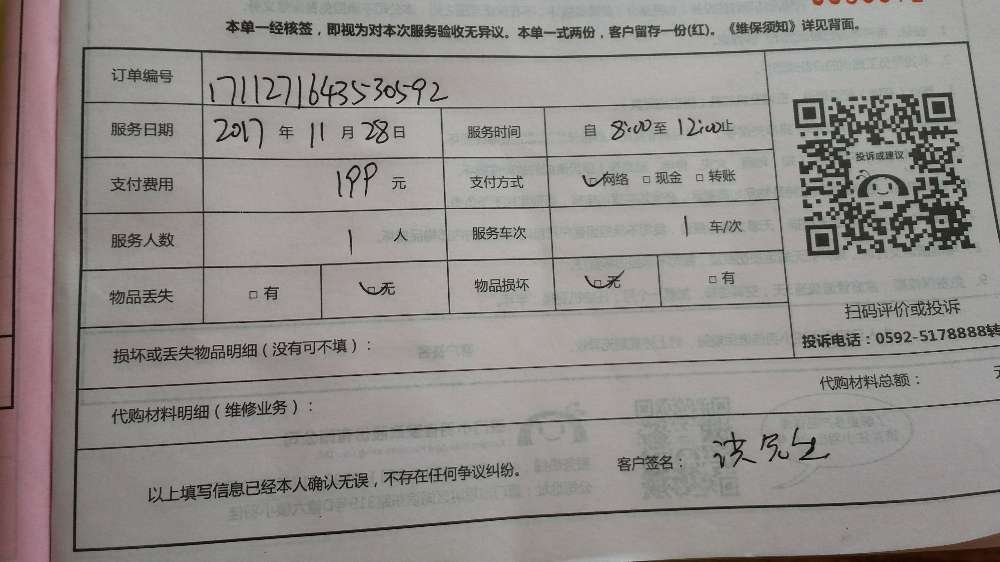 本单一经核签，即视为对本次服务验收无异议。本单一式两份，客户留存一份(红)。《维保须知》详见背面。
订单编号 1711271643530592
服务日期 2017 年 11 月 28 日 服务时间 自 8:00 至 12:00 止
支付费用 199 元 支付方式 网络 现金 转账
服务人数 1 人 服务车次 1 车/次
物品丢失 有 无 物品损坏 无 有
投诉或建议
扫码评价或投诉
投诉电话：0592-5178888转
损坏或丢失物品明细（没有可不填）：
代购材料明细（维修业务）： 代购材料总额：
以上填写信息已经本人确认无误，不存在任何争议纠纷。 客户签名： 洪先生